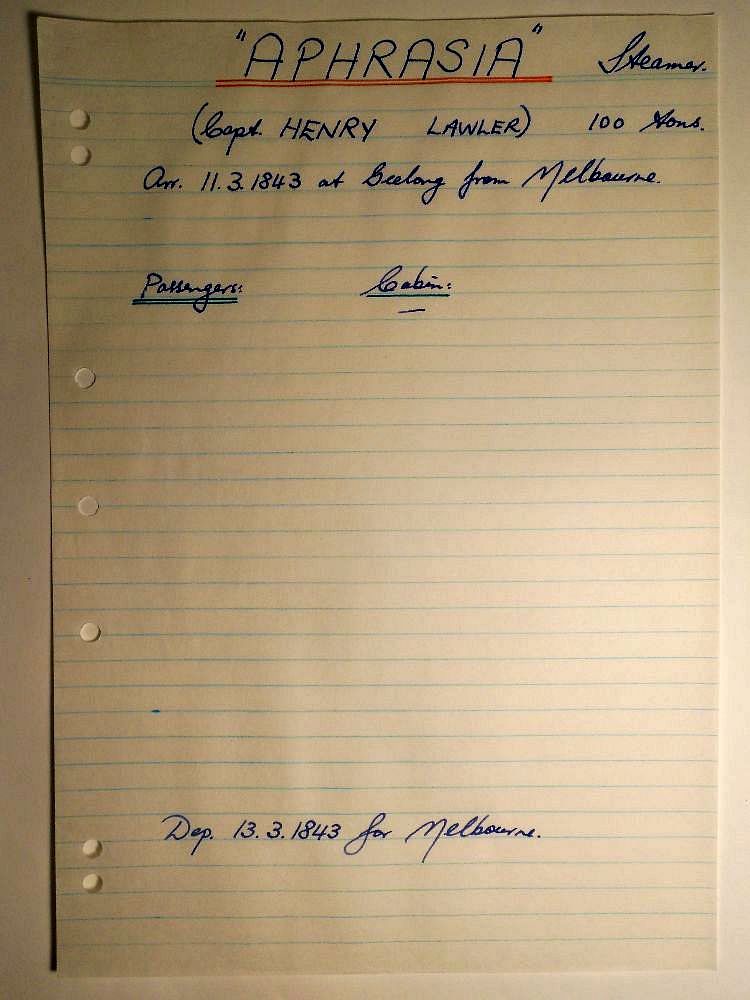 "APHRASIA" Steamer.
(Capt. HENRY LAWLER) 100 tons.
Arr. 11.3.1843 at Geelong from Melbourne.
Passengers: Cabin:
—
Dep. 13.3.1843 for Melbourne.